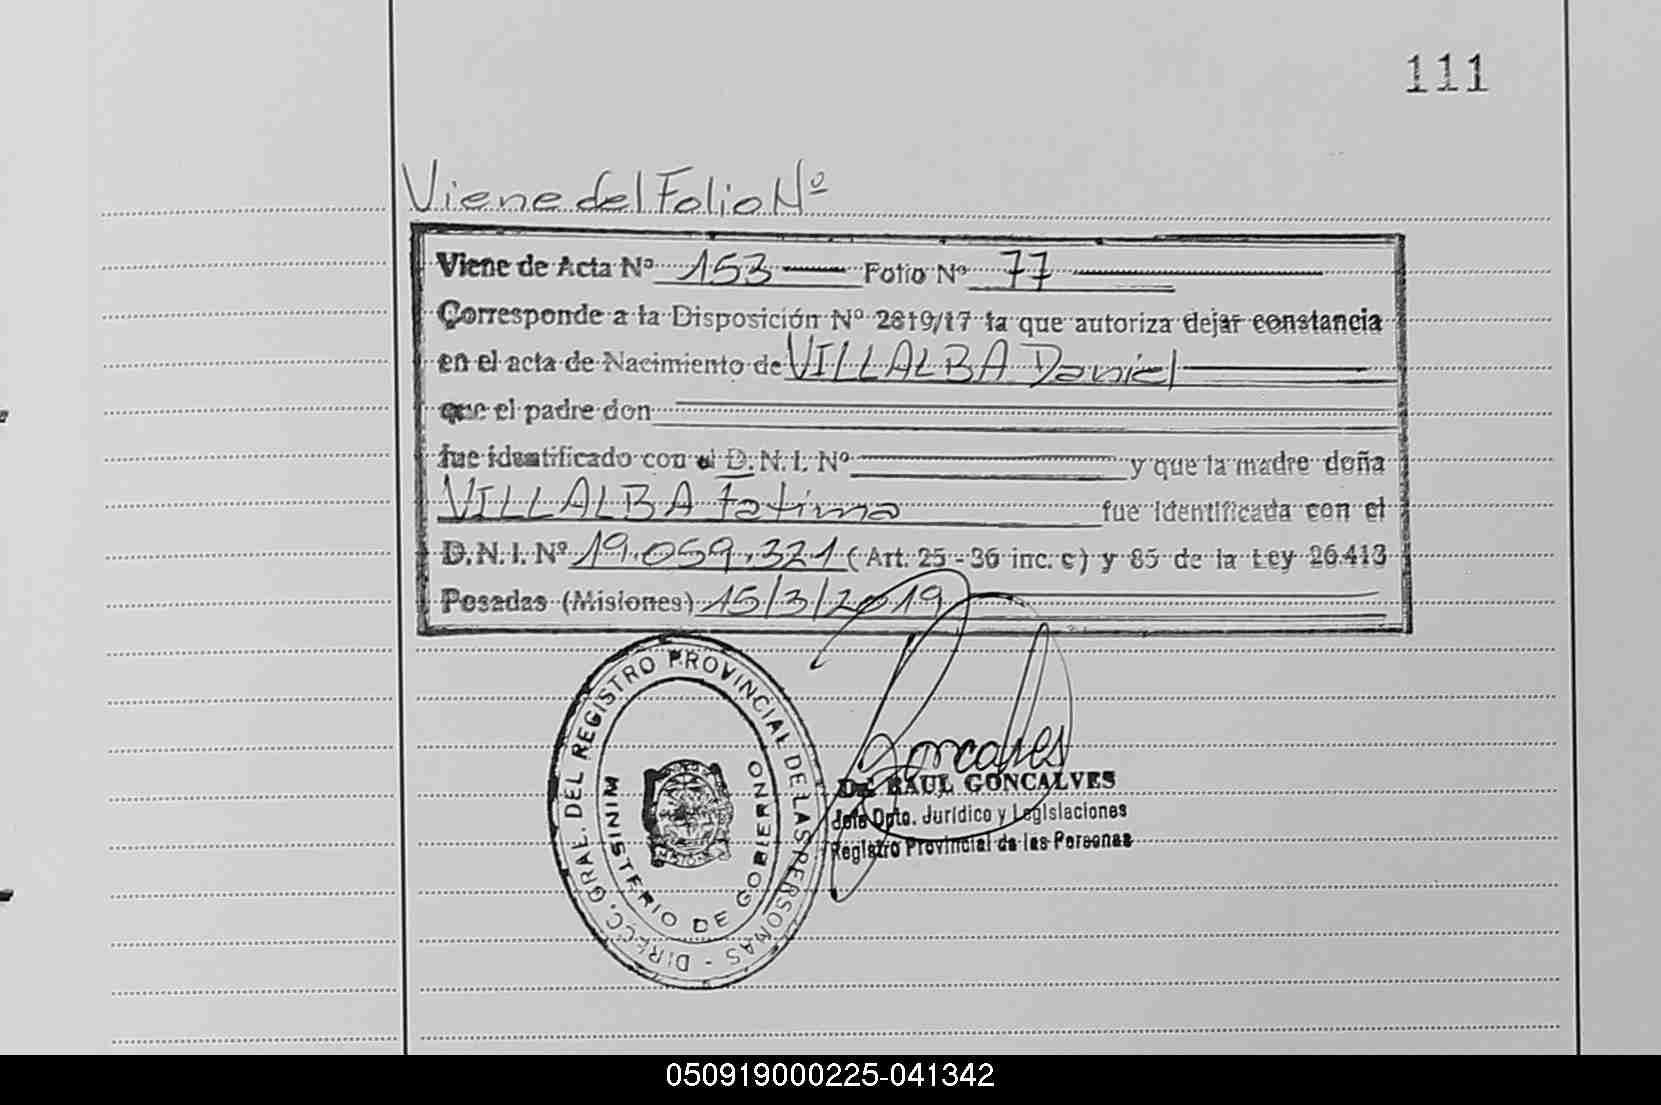 111
Viene del Folio Nº
Viene de Acta Nº 153 Folio Nº 77
Corresponde a la Disposición Nº 2819/17 la que autoriza dejar constancia
en el acta de Nacimiento de VILLALBA Daniel
que el padre don
fue identificado con el D.N.I. Nº y que la madre doña
VILLALBA Fatima fue identificada con el
D.N.I. Nº 19.059.321 (Art. 25 - 36 inc. c) y 85 de la Ley 26.413
Posadas (Misiones) 15/3/2019
DIRECC. GRAL. DEL REGISTRO PROVINCIAL DE LAS PERSONAS -
MINISTERIO DE GOBIERNO
Goncalves
Dr. RAUL GONCALVES
Jefe Dpto. Jurídico y Legislaciones
Registro Provincial de las Personas
050919000225-041342